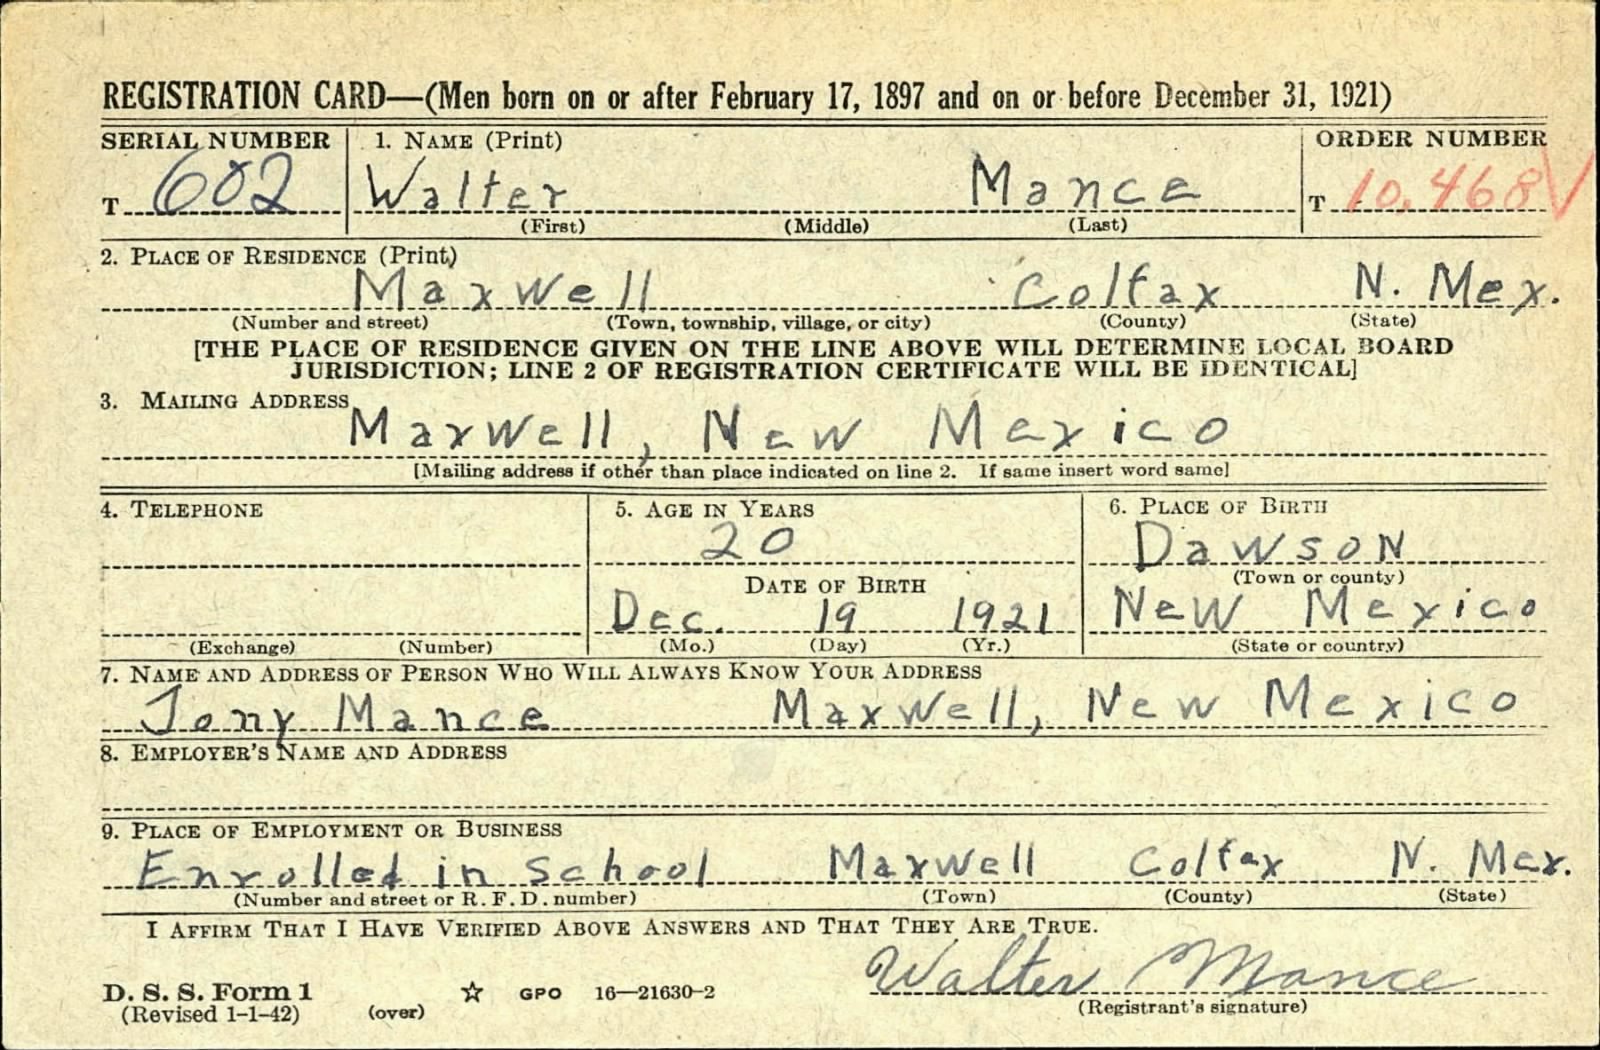 REGISTRATION CARD—(Men born on or after February 17, 1897 and on or before December 31, 1921)
SERIAL NUMBER 1. NAME (Print) ORDER NUMBER
T 602 Walter Mance T 10,468
(First) (Middle) (Last)
2. PLACE OF RESIDENCE (Print)
Maxwell Colfax N. Mex.
(Number and street) (Town, township, village, or city) (County) (State)
[THE PLACE OF RESIDENCE GIVEN ON THE LINE ABOVE WILL DETERMINE LOCAL BOARD
JURISDICTION; LINE 2 OF REGISTRATION CERTIFICATE WILL BE IDENTICAL]
3. MAILING ADDRESS
Maxwell, New Mexico
[Mailing address if other than place indicated on line 2. If same insert word same]
4. TELEPHONE 5. AGE IN YEARS 6. PLACE OF BIRTH
20 Dawson
(Town or county)
DATE OF BIRTH
Dec. 19 1921 New Mexico
(Exchange) (Number) (Mo.) (Day) (Yr.) (State or country)
7. NAME AND ADDRESS OF PERSON WHO WILL ALWAYS KNOW YOUR ADDRESS
Tony Mance Maxwell, New Mexico
8. EMPLOYER'S NAME AND ADDRESS
9. PLACE OF EMPLOYMENT OR BUSINESS
Enrolled in School Maxwell Colfax N. Mex.
(Number and street or R. F. D. number) (Town) (County) (State)
I AFFIRM THAT I HAVE VERIFIED ABOVE ANSWERS AND THAT THEY ARE TRUE.
Walter Mance
D. S. S. Form 1 GPO 16—21630-2
(Revised 1-1-42) (over) (Registrant's signature)